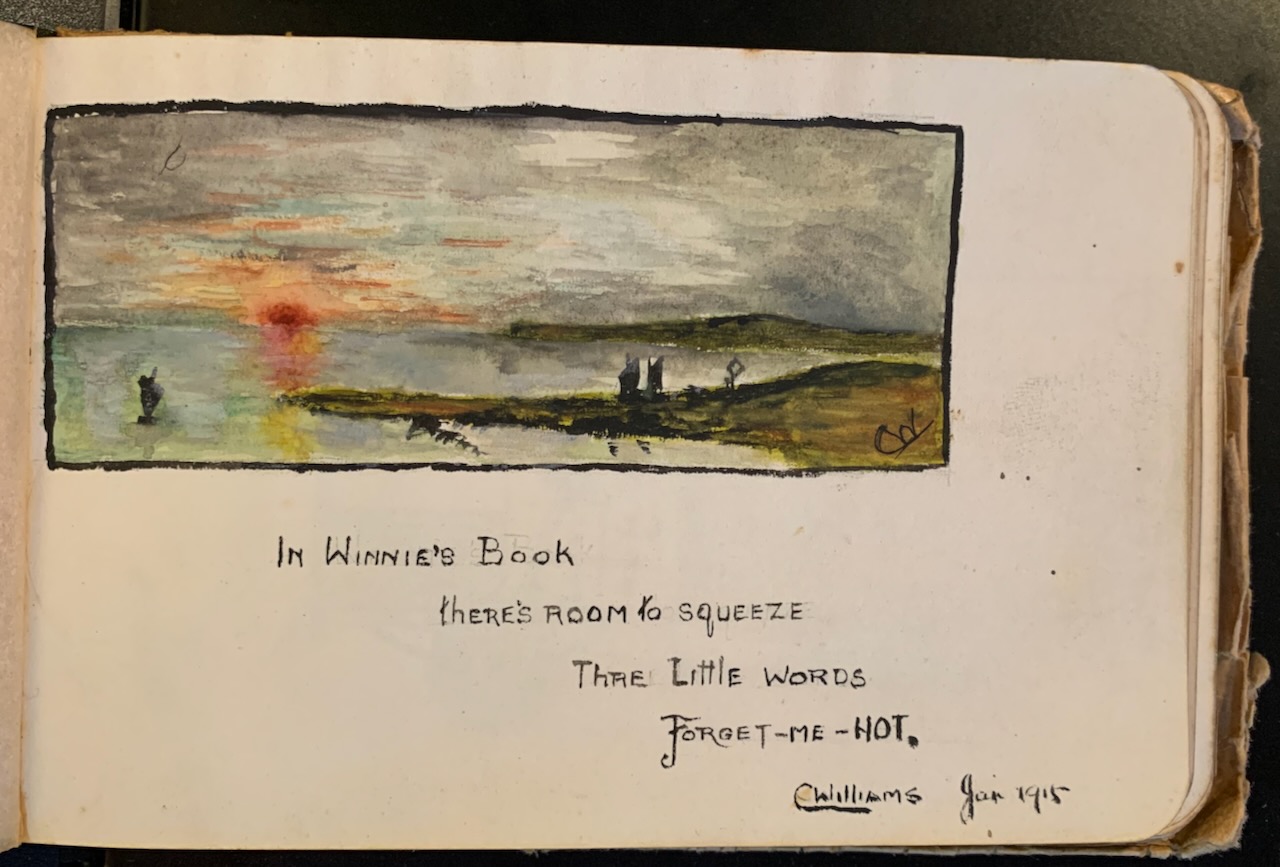 CW
In Winnie's Book
there's room to squeeze
Thre Little words
Forget-me-not.
CWilliams Jan 1915